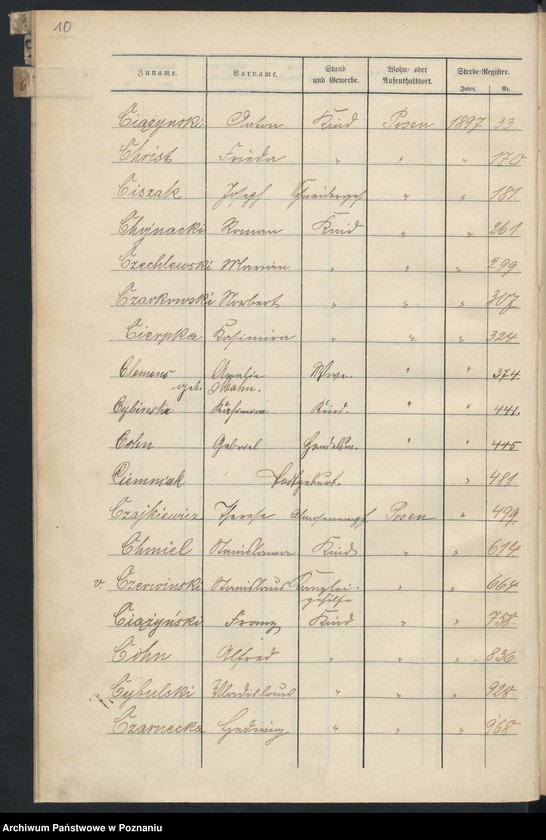 10
Zuname. Vorname. Stand und Gewerbe. Wohn- oder Aufenthaltsort. Sterbe-Register.
Jahrg. Nr.
Ciążynski Anton Kind Posen 1897 33
Christ Frieda " " " 170
Ciszak Joseph Schneiderges " " 181
Chojnacki Roman Kind " " 261
Czechlewski Marian " " " 299
Czarkowski Norbert " " " 307
Cierpka Kasimira " " " 324
Clemens Amalie Wwe. " " 374.
geb. Mahn.
Cybinska Kasimira Kind. " " 441.
Cohn Gabriel Handelsm. " " 445
Ciemniak Todtgeburt. " 481
Czajkiewicz Therese Almosenempf Posen " 499
Chmiel Stanislawa Kind " " 614
v. Czerwinski Stanislaus Kanzlei- " " 664
gehilfe
Ciążyński Franz Kind " " 738
Cohn Alfred " " " 836
Cybulski Wladislaus " " " 928
Czarnecka Hedwig " " " 968
Archiwum Państwowe w Poznaniu